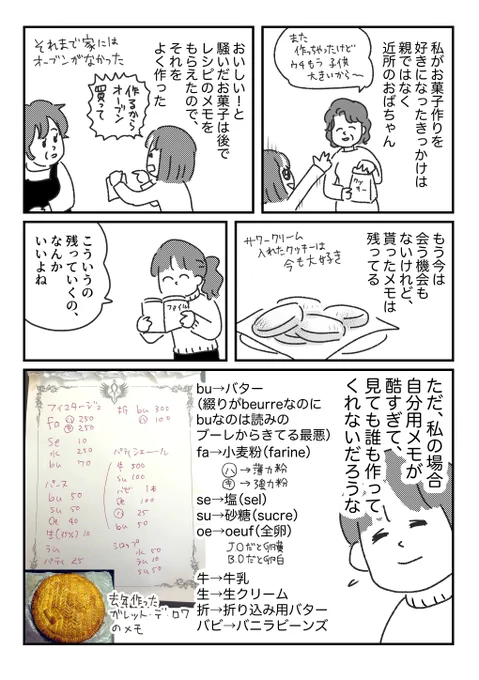 私がお菓子作りを
好きになったきっかけは
親ではなく
近所のおばちゃん
また
作っちゃったけど
ウチもう子供
大きいから〜
クッキー
おいしい!と
騒いだお菓子は後で
レシピのメモを
もらえたので、
それを
よく作った
それまで家には
オーブンがなかった
作るから
オーブン
買って
もう今は
会う機会も
ないけれど、
貰ったメモは
残ってる
サワークリーム
入れたクッキーは
今も大好き
こういうの
残っていくの、
なんか
いいよね
ファイル
ただ、私の場合
自分用メモが
酷すぎて、
見ても誰も作って
くれないだろうな
bu→バター
(綴りがbeurreなのに
buなのは読みの
ブーレからきてる最悪)
fa→小麦粉(farine)
ハ→薄力粉
キ→強力粉
se→塩(sel)
su→砂糖(sucre)
oe→oeuf(全卵)
J.Oだと卵黄
B.Oだと卵白
牛→牛乳
生→生クリーム
折→折り込み用バター
バビ→バニラビーンズ
フイユタージュ
fa ハ 250
キ 250
se 10
水 250
bu 70
折 bu 300
ハ 100
パティシエール
牛 500
su 100
バビ 1本
oe 100
ハ 25
bu 50
パース
bu 50
su 50
oe 40
生(35%) 10
ラム
パティ 25
シロップ
水 50
ラム 10
su 50
去年作った
ガレット・デ・ロワ
のメモ